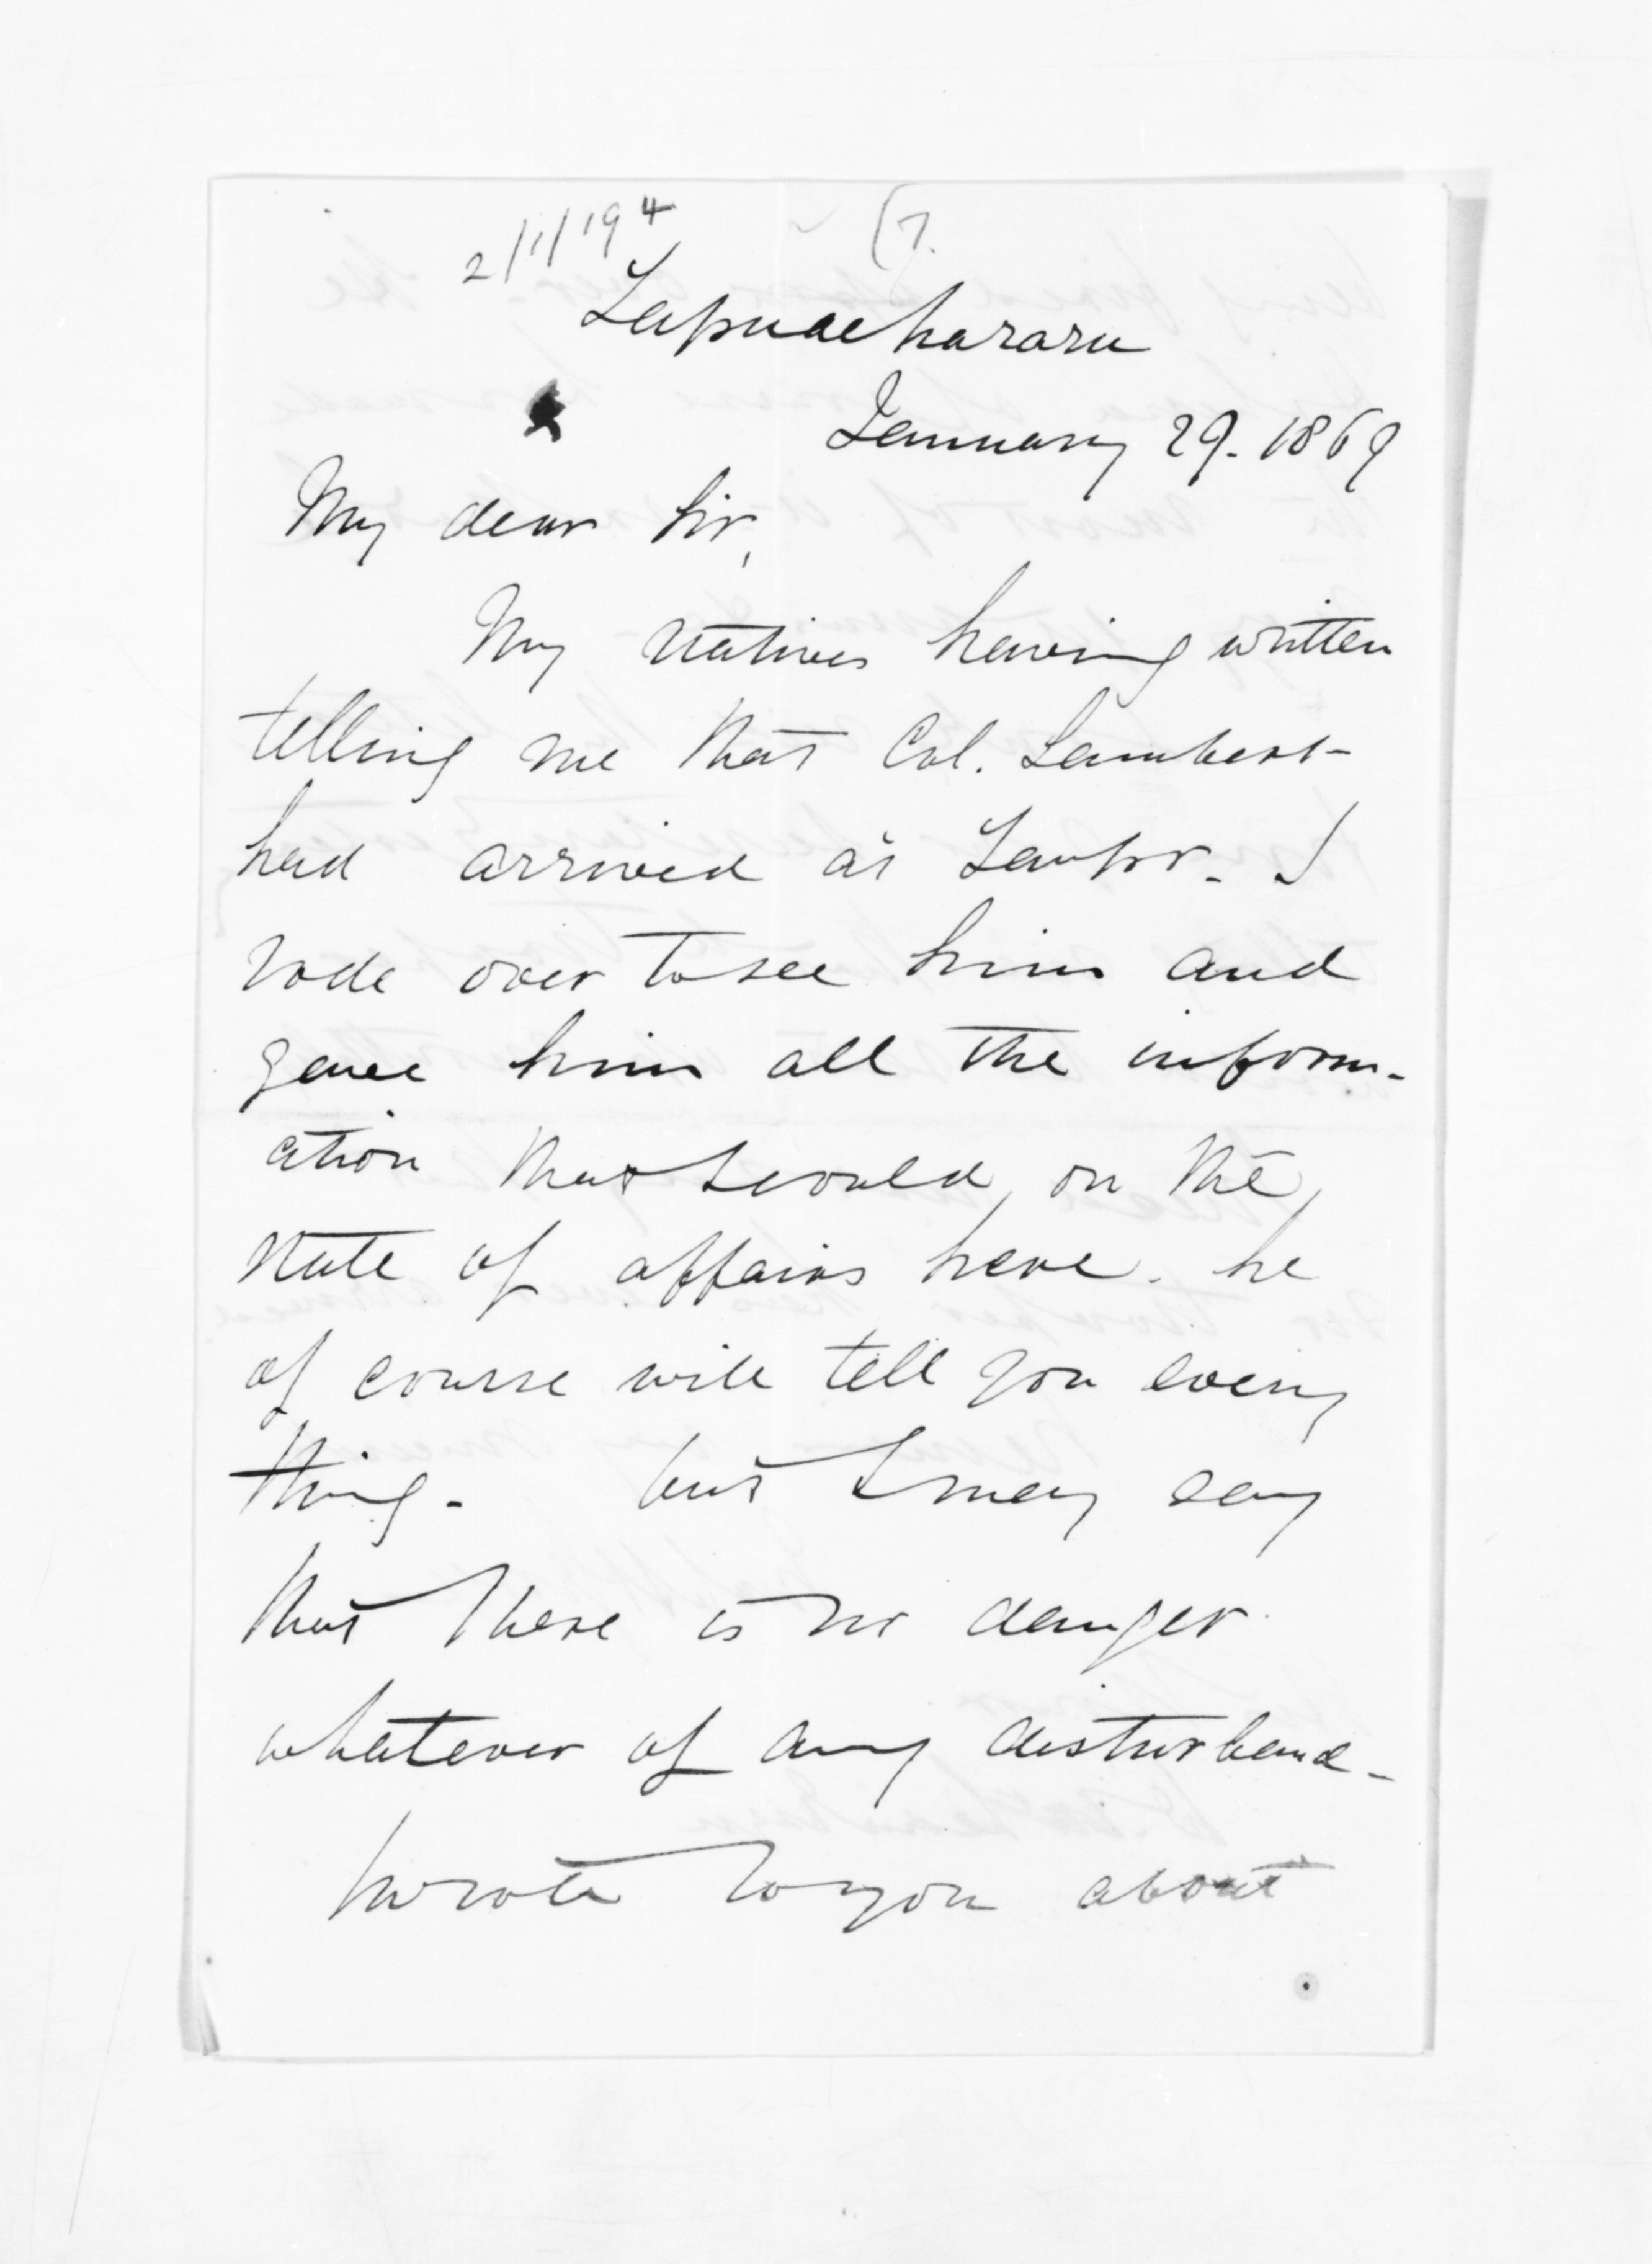 2/1/194 (7.
Tapuaeharuru
January 29. 1869
My dear Sir,
My natives having written
telling me that Col. Lambert
had arrived at Taupo. I
rode over to see him and
gave him all the inform-
ation that I could, on the,
state of affairs here. he
of course will tell you every
thing. but I may say
that there is no danger
whatever of any disturbance.
I wrote to you about